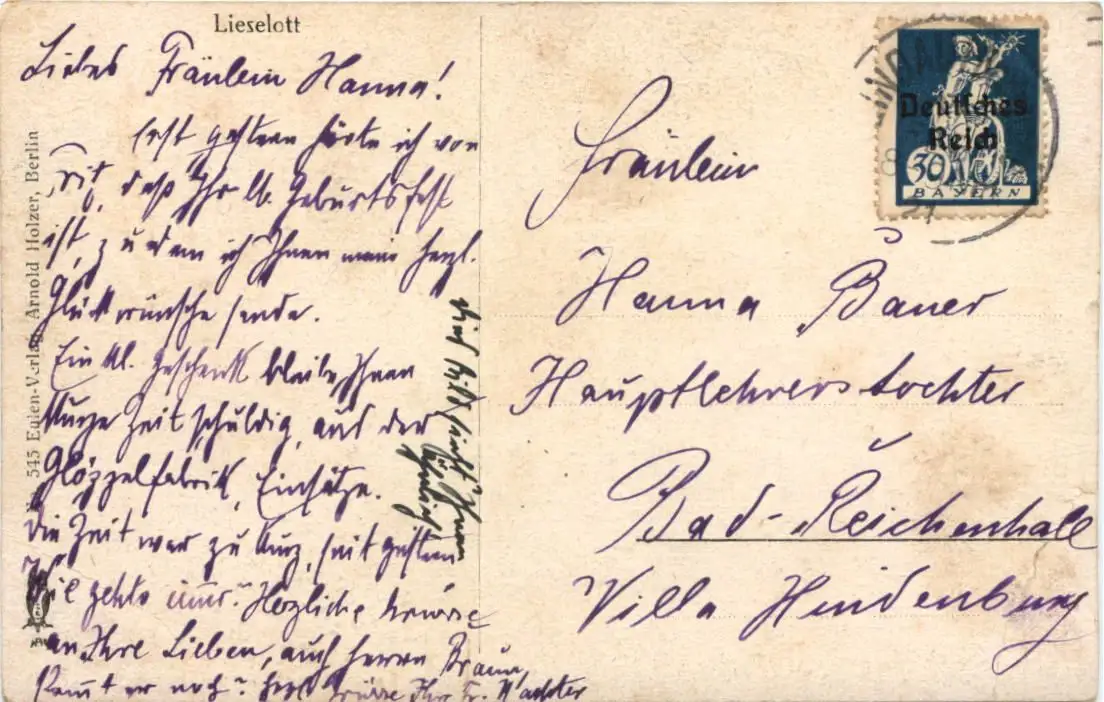 Lieselott
Liebes Fräulein Hanna!
Erst gestern hörte ich von
daß Ihr lb. Geburtsfest
ist, zu dem ich Ihnen meine herzl.
Glückwünsche sende.
Ein kl. Geschenk bleibe Ihnen
kurze Zeit schuldig, aus der
Klöppelfabrik, Einsätze.
Die Zeit war zu kurz, seit gestern
Wie gehts immer? Herzliche Grüsse
an Ihre Lieben, auch Herrn Braun,
er noch? Herzl. Grüsse Ihre Fr. Wachter
sieht Ihnen
ähnlich
No. 545 Eulen-Verlag Arnold Holzer, Berlin
Deutsches
Reich
30
BAYERN
Fräulein
Hanna Bauer
Hauptlehrerstochter
Bad-Reichenhall
Villa Hindenburg